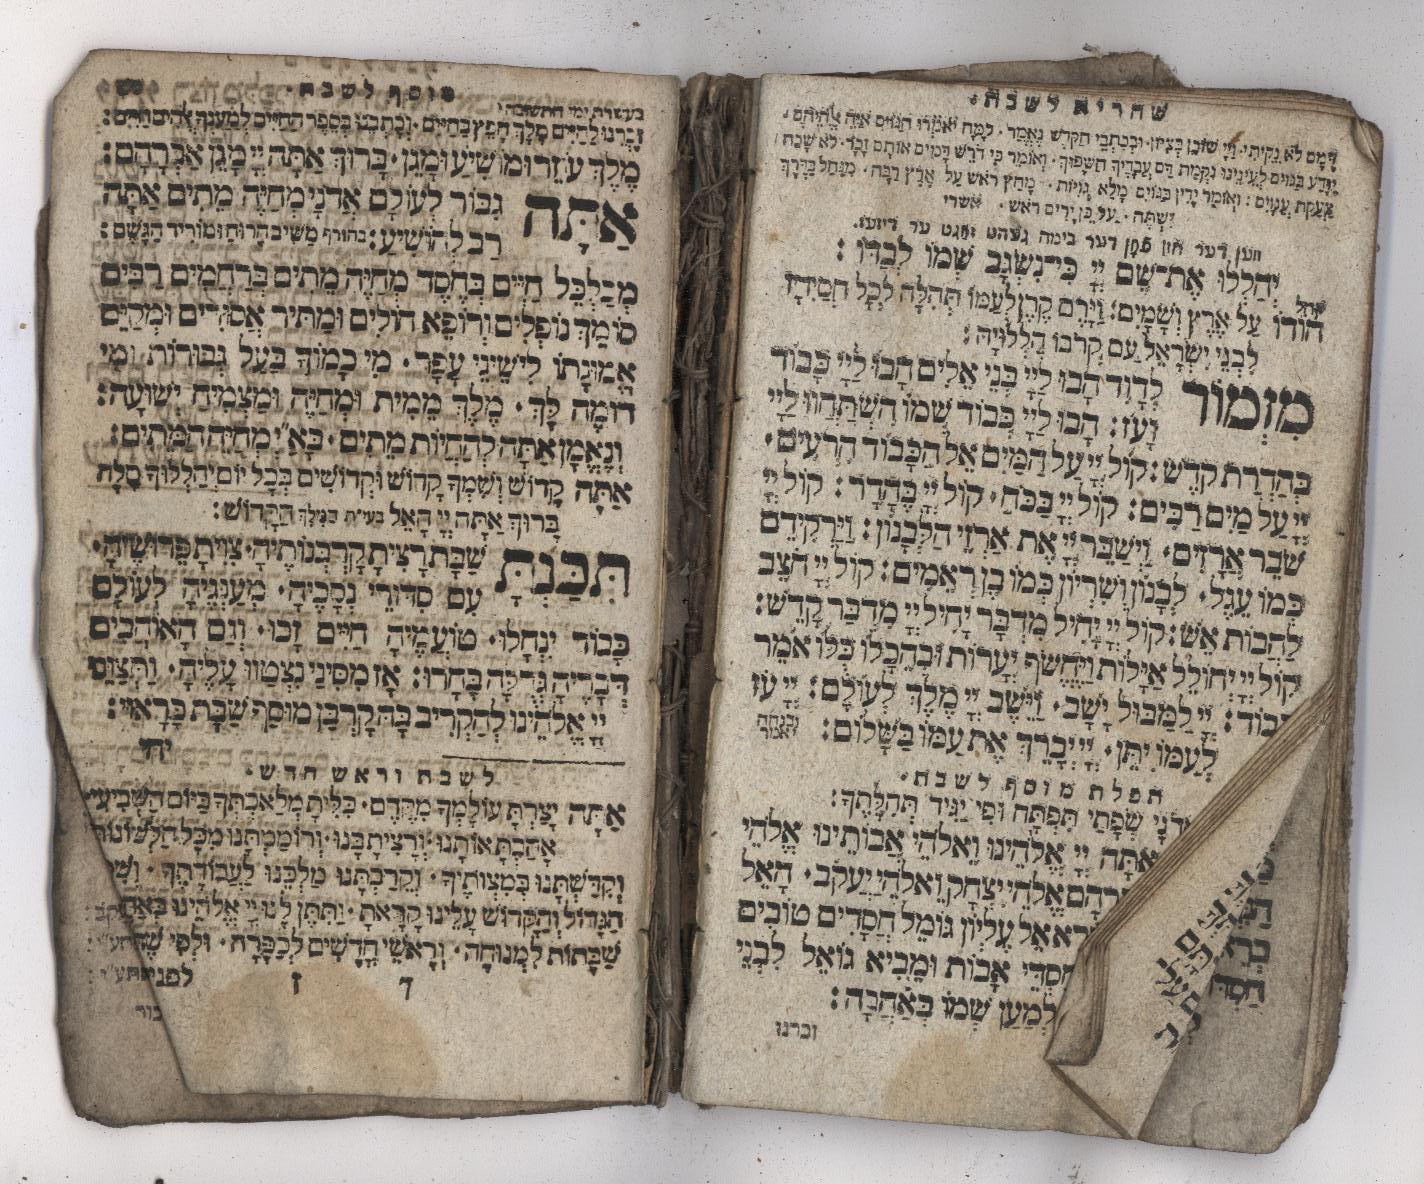 שחרית לשבת
דמם לא נקיתי · ויי שוכן בציון · ובכתבי הקדש נאמר · למה יאמרו הגוים איה אלהיהם ·
יודע בגוים לעינינו נקמת דם עבדיך השפוך · ואומר כי דורש דמים אותם זכר · לא שכח
צעקת ענוים : ואומר ידין בגוים מלא גויות · מחץ ראש על ארץ רבה · מנחל בדרך
ישתה · על כן ירים ראש · אשרי
ווען דער חזן
יְהַלְלוּ אֶת־שֵׁם יְיָ כִּי־נִשְׂגָּב שְׁמוֹ לְבַדּוֹ :
קהל
הוֹדוֹ עַל אֶרֶץ וְשָׁמָיִם : וַיָּרֶם קֶרֶן לְעַמּוֹ תְּהִלָּה לְכָל חֲסִידָיו
לִבְנֵי יִשְׂרָאֵל עַם קְרֹבוֹ הַלְלוּיָהּ :
מִזְמוֹר לְדָוִד הָבוּ לַיְיָ בְּנֵי אֵלִים הָבוּ לַיְיָ כָּבוֹד
וָעֹז : הָבוּ לַיְיָ כְּבוֹד שְׁמוֹ הִשְׁתַּחֲווּ לַיְיָ
בְּהַדְרַת קֹדֶשׁ : קוֹל יְיָ עַל הַמָּיִם אֵל הַכָּבוֹד הִרְעִים ·
יְיָ עַל מַיִם רַבִּים : קוֹל יְיָ בַּכֹּחַ · קוֹל יְיָ בֶּהָדָר : קוֹל יְיָ
שֹׁבֵר אֲרָזִים · וַיְשַׁבֵּר יְיָ אֶת אַרְזֵי הַלְּבָנוֹן : וַיַּרְקִידֵם
כְּמוֹ עֵגֶל · לְבָנוֹן וְשִׂרְיוֹן כְּמוֹ בֶן רְאֵמִים : קוֹל יְיָ חֹצֵב
לַהֲבוֹת אֵשׁ : קוֹל יְיָ יָחִיל מִדְבָּר יָחִיל יְיָ מִדְבַּר קָדֵשׁ :
קוֹל יְיָ יְחוֹלֵל אַיָּלוֹת וַיֶּחֱשֹׂף יְעָרוֹת וּבְהֵיכָלוֹ כֻּלּוֹ אֹמֵר
כבוֹד : יְיָ לַמַּבּוּל יָשָׁב · וַיֵּשֶׁב יְיָ מֶלֶךְ לְעוֹלָם : יְיָ עֹז
לְעַמּוֹ יִתֵּן · יְיָ יְבָרֵךְ אֶת עַמּוֹ בַשָּׁלוֹם : ובנחה יאמר
תפלת מוסף לשבת ·
שְׂפָתַי תִּפְתָּח וּפִי יַגִּיד תְּהִלָּתֶךָ :
אַתָּה יְיָ אֱלֹהֵינוּ וֵאלֹהֵי אֲבוֹתֵינוּ אֱלֹהֵי
אֱלֹהֵי יִצְחָק וֵאלֹהֵי יַעֲקֹב · הָאֵל
אֵל עֶלְיוֹן גּוֹמֵל חֲסָדִים טוֹבִים
חַסְדֵי אָבוֹת וּמֵבִיא גוֹאֵל לִבְנֵי
לְמַעַן שְׁמוֹ בְּאַהֲבָה :
זכרנו
מוסף לשבת ·
בעשרת ימי התשובה
זָכְרֵנוּ לַחַיִּים מֶלֶךְ חָפֵץ בַּחַיִּים · וְכָתְבֵנוּ בְּסֵפֶר הַחַיִּים לְמַעַנְךָ אֱלֹהִים חַיִּים :
מֶלֶךְ עוֹזֵר וּמוֹשִׁיעַ וּמָגֵן · בָּרוּךְ אַתָּה יְיָ מָגֵן אַבְרָהָם :
אַתָּה גִּבּוֹר לְעוֹלָם אֲדֹנָי מְחַיֵּה מֵתִים אַתָּה
רַב לְהוֹשִׁיעַ : בחורף מַשִּׁיב הָרוּחַ וּמוֹרִיד הַגֶּשֶׁם :
מְכַלְכֵּל חַיִּים בְּחֶסֶד מְחַיֵּה מֵתִים בְּרַחֲמִים רַבִּים
סוֹמֵךְ נוֹפְלִים וְרוֹפֵא חוֹלִים וּמַתִּיר אֲסוּרִים וּמְקַיֵּם
אֱמוּנָתוֹ לִישֵׁנֵי עָפָר · מִי כָמוֹךָ בַּעַל גְּבוּרוֹת וּמִי
דוֹמֶה לָּךְ · מֶלֶךְ מֵמִית וּמְחַיֶּה וּמַצְמִיחַ יְשׁוּעָה :
וְנֶאֱמָן אַתָּה לְהַחֲיוֹת מֵתִים · בָּאַ"יְ מְחַיֵּה הַמֵּתִים :
אַתָּה קָדוֹשׁ וְשִׁמְךָ קָדוֹשׁ וּקְדוֹשִׁים בְּכָל יוֹם יְהַלְלוּךָ סֶּלָה
בָּרוּךְ אַתָּה יְיָ הָאֵל בעי"ת המלך הַקָּדוֹשׁ :
תִּכַּנְתָּ שַׁבָּת רָצִיתָ קָרְבְּנוֹתֶיהָ · צִוִּיתָ פֵּרוּשֶׁיהָ ·
עִם סִדּוּרֵי נְסָכֶיהָ · מְעַנְּגֶיהָ לְעוֹלָם
כָּבוֹד יִנְחָלוּ · טוֹעֲמֶיהָ חַיִּים זָכוּ · וְגַם הָאוֹהֲבִים
דְּבָרֶיהָ גְּדֻלָּה בָּחָרוּ : אָז מִסִּינַי נִצְטַוּוּ עָלֶיהָ · וַתְּצַוֵּם
יְיָ אֱלֹהֵינוּ לְהַקְרִיב בָּהּ קָרְבַּן מוּסַף שַׁבָּת כָּרָאוּי :
יהי
לשבת וראש חדש ·
אַתָּה יָצַרְתָּ עוֹלָמְךָ מִקֶּדֶם · כִּלִּיתָ מְלַאכְתְּךָ בַּיּוֹם הַשְּׁבִיעִי
אָהַבְתָּ אוֹתָנוּ · וְרָצִיתָ בָּנוּ · וְרוֹמַמְתָּנוּ מִכָּל הַלְּשׁוֹנוֹת
וְקִדַּשְׁתָּנוּ בְּמִצְוֹתֶיךָ · וְקֵרַבְתָּנוּ מַלְכֵּנוּ לַעֲבוֹדָתֶךָ · וְשִׁ
הַגָּדוֹל וְהַקָּדוֹשׁ עָלֵינוּ קָרָאתָ · וַתִּתֶּן לָנוּ יְיָ אֱלֹהֵינוּ בְּאַהֲ
שַׁבָּתוֹת לִמְנוּחָה · וְרָאשֵׁי חֳדָשִׁים לְכַפָּרָה · וּלְפִי שֶׁ
ד ז לפניך